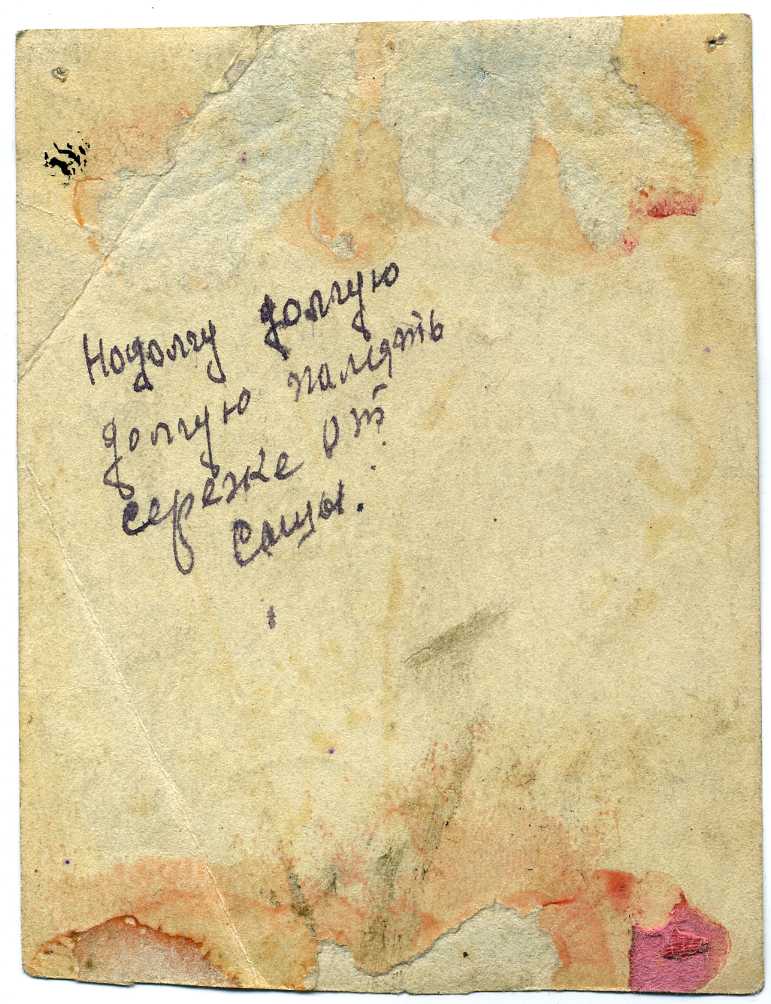 Нодолгу долгую
долгую память
сережке от
Сашы.